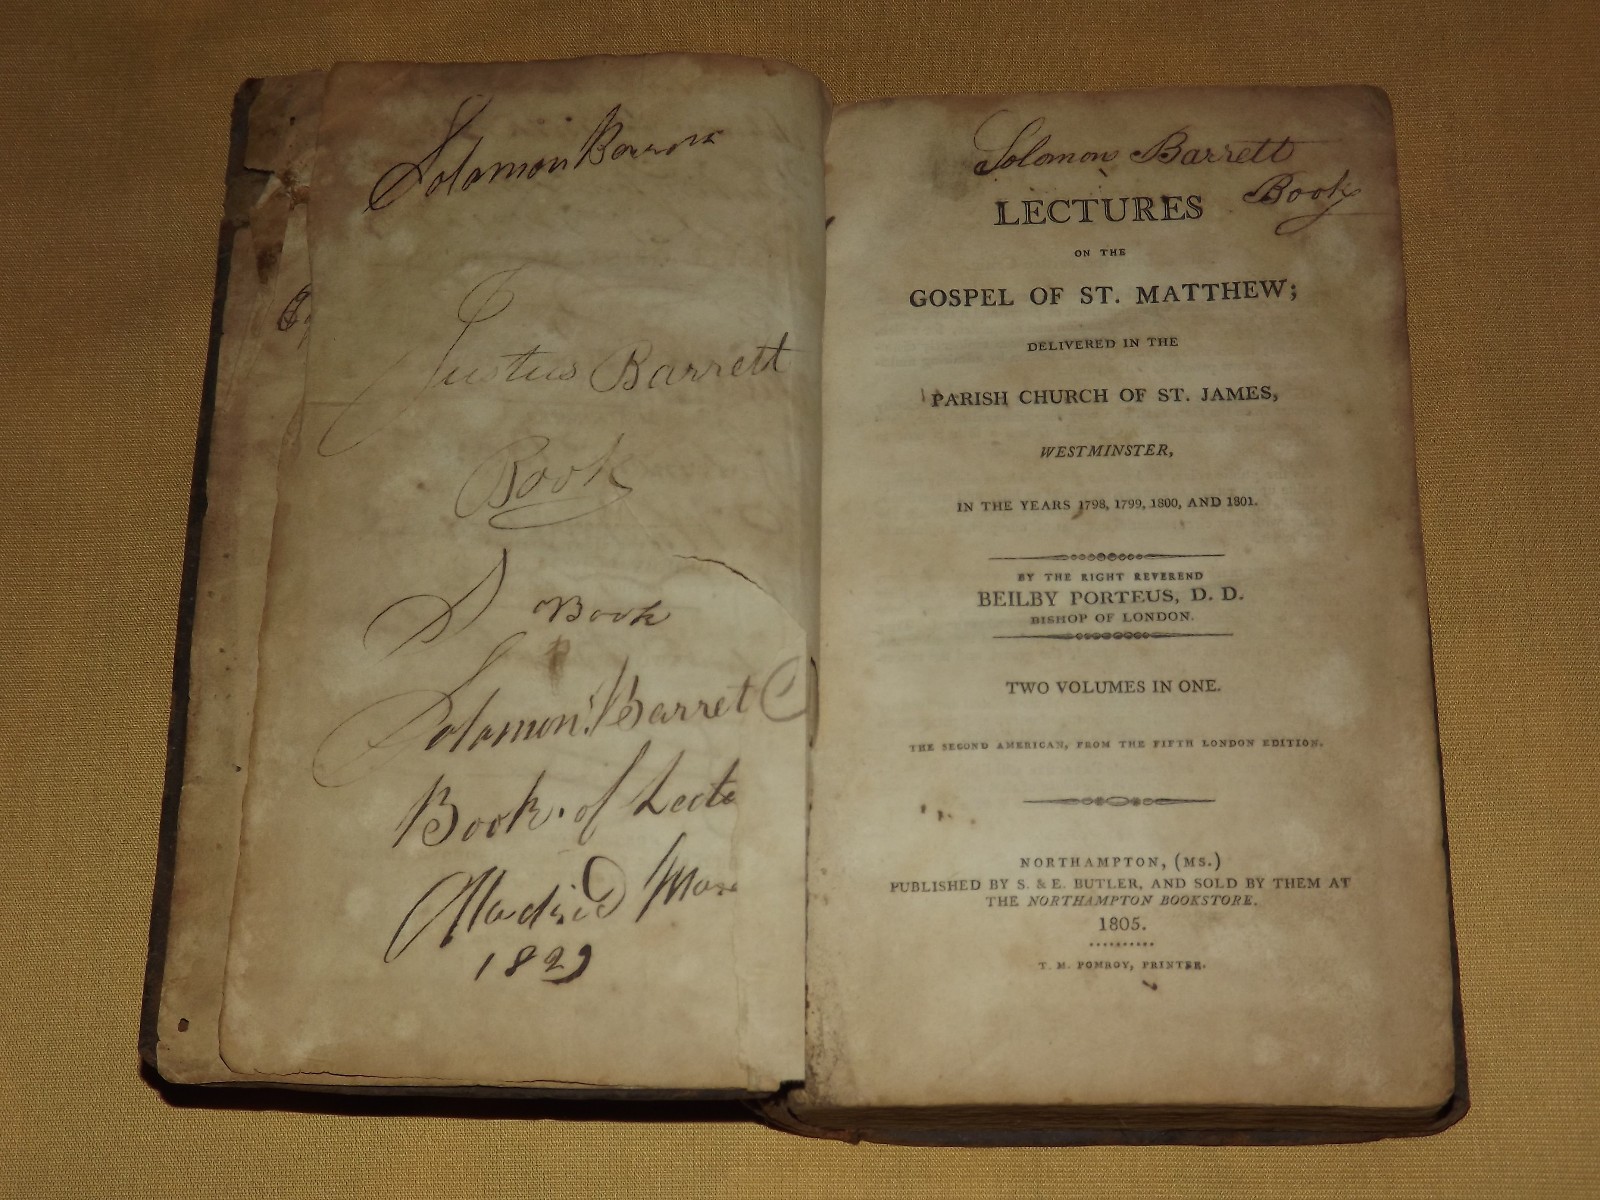 Solomon
Justus Barrett
Book
S Book
Solomon Barret
Book of Lect
Madrid Mar
1829
Solomon Barrett
Book
LECTURES
ON THE
GOSPEL OF ST. MATTHEW;
DELIVERED IN THE
PARISH CHURCH OF ST. JAMES,
WESTMINSTER,
IN THE YEARS 1798, 1799, 1800, AND 1801.
BY THE RIGHT REVEREND
BEILBY PORTEUS, D. D.
BISHOP OF LONDON.
TWO VOLUMES IN ONE.
THE SECOND AMERICAN, FROM THE FIFTH LONDON EDITION.
NORTHAMPTON, (MS.)
PUBLISHED BY S. & E. BUTLER, AND SOLD BY THEM AT
THE NORTHAMPTON BOOKSTORE.
1805.
T. M. POMROY, PRINTER.